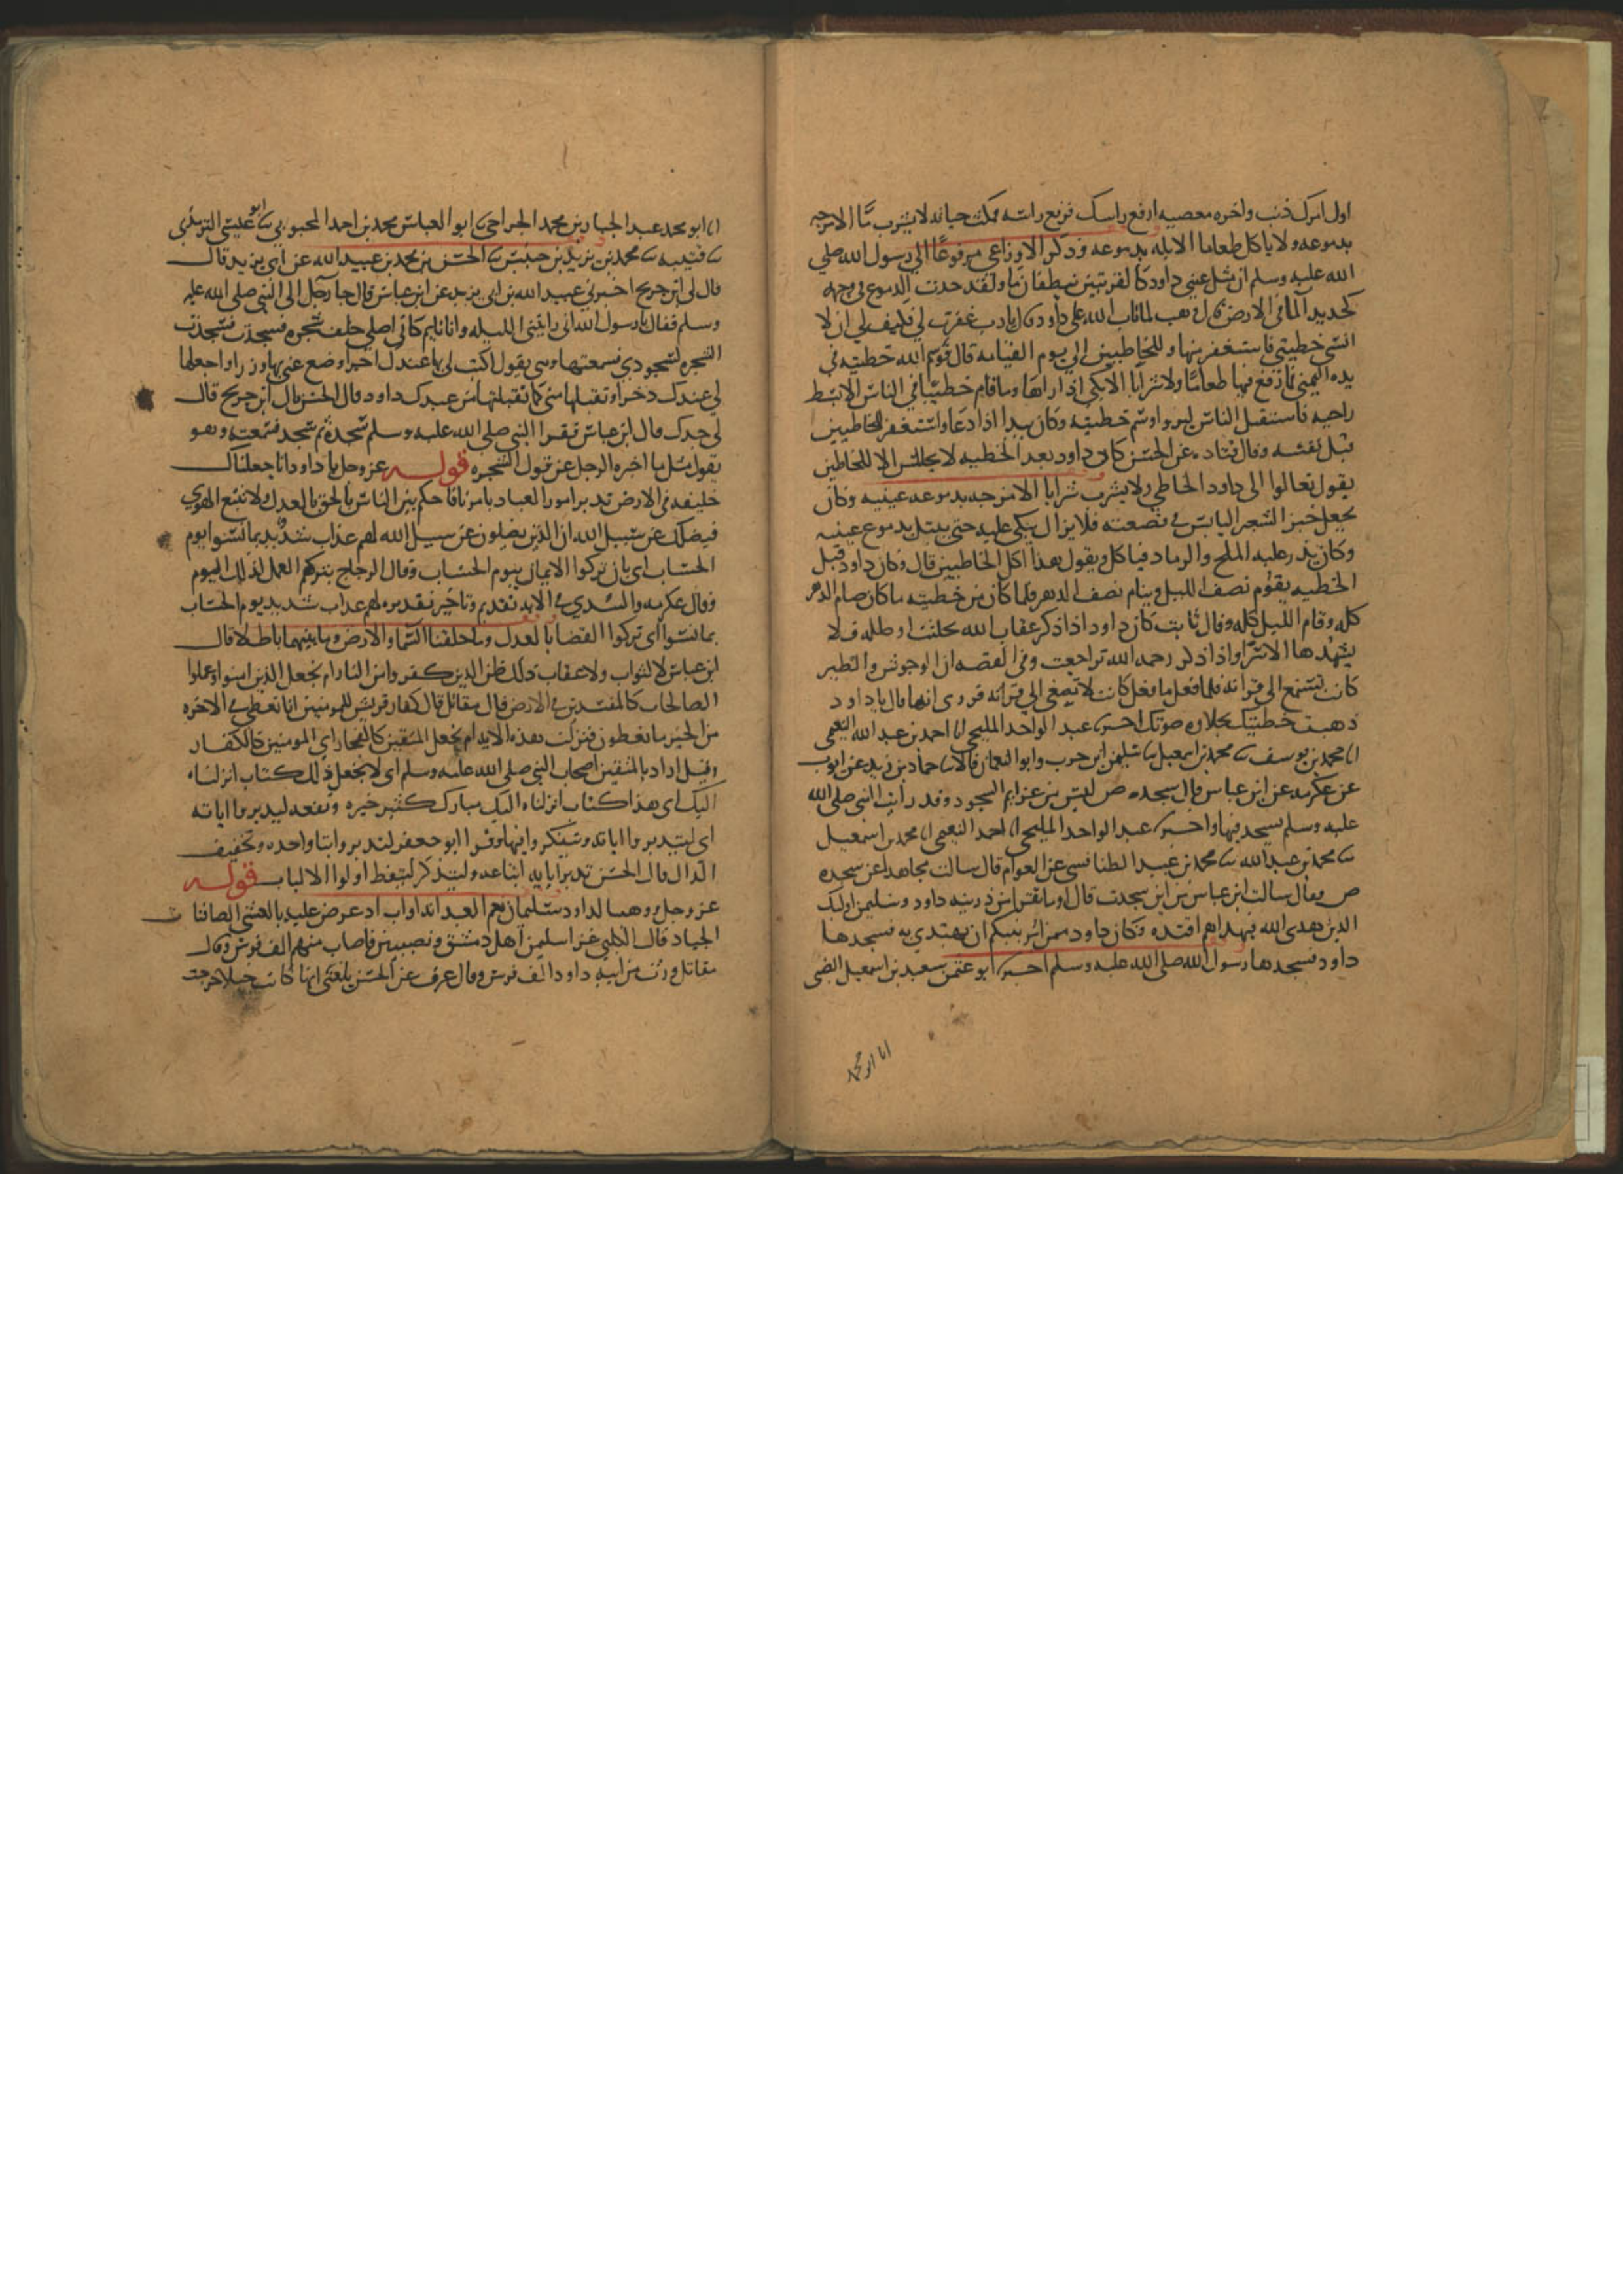 اول امرك ذنب واخره معصيه ارفع راسك فرفع راسه فمكث حياته لا يشرب ما الا مزجه
بدموعه ولا ياكل طعاما الا بله بدموعه وذكر الاوزاعي مرفوعا الى رسول الله صلى
الله عليه وسلم ان مثل عيني داود كالقربتين ينطفان ما ولقد خدت الدموع في وجهه
كخديد الما في الارض قال وهب لما تاب الله على داود قال يا رب غفرت لي فكيف لي ان لا
انسى خطيتي فاستغفر منها وللخاطيين الى يوم القيامه قال فوسم الله خطيته في
يده اليمنى فما رفع فيها طعاما ولا شرابا الا بكى اذا راها وما قام خطيبا في الناس الا بسط
راحته فاستقبل الناس ليروا وسم خطيته وكان يبدا اذا دعا واستغفر للخاطيين
قبل نفسه وقال قتاده عن الحسن كان داود بعد الخطيه لا يجالس الا للخاطين
يقول تعالوا الى داود الخاطي ولا يشرب شرابا الا مزجه بدموعه عينيه وكان
يجعل خبز الشعير اليابس في قصعته فلا يزال يبكي عليه حتى يبتل بدموع عينيه
وكان يذر عليه الملح والرماد فياكل ويقول هذا اكل الخاطيين قال وكان داود قبل
الخطيه يقوم نصف الليل وينام نصف الدهر فلما كان من خطيته ما كان صام الدهر
كله وقام الليل كله وقال ثابت كان داود اذا ذكر عقاب الله تخلعت اوصاله فلا
يشدها الا الاسر واذا ذكر رحمه الله تراجعت وفي القصه ان الوحوش والطير
كانت تستمع الى قراته فلما فعل ما فعل كانت لا تصغي الى قراته فروي انها قال يا داود
ذهبت خطيتك بحلاوه صوتك اخبرنا عبد الواحد المليحي انا احمد بن عبد الله النعيمي
انا محمد بن يوسف ثنا محمد بن اسمعيل ثنا سليمن بن حرب وابو النعمان قالا ثنا حماد بن زيد عن ايوب
عن عكرمه عن ابن عباس قال سجده ص ليس من عزايم السجود وقد رايت النبي صلى الله
عليه وسلم يسجد فيها واخبرنا عبد الواحد المليحي انا احمد النعيمي انا محمد بن اسمعيل
ثنا محمد بن عبد الله ثنا محمد بن عبيد الطنافسي عن العوام قال سالت مجاهدا عن سجده
ص فقال سالت ابن عباس من اين سجدت قال اوما تقرا من ذريته داود وسليمن اولئك
الذين هدى الله فبهداهم اقتده وكان داود ممن امر نبيكم ان يهتدي به فسجدها
داود فسجدها رسول الله صلى الله عليه وسلم اخبرنا ابو عثمن سعيد بن اسمعيل الضبي
انا ابو محمد
انا ابو محمد عبد الجبار بن محمد الجراحي ثنا ابو العباس محمد بن احمد المحبوبي ثنا ابو عيسى الترمذي
ثنا قتيبه ثنا محمد بن يزيد بن خنيس ثنا الحسن بن محمد بن عبيد الله عن ابي يزيد قال
قال لي ابن جريج اخبرني عبيد الله بن ابي يزيد عن ابن عباس قال جا رجل الى النبي صلى الله عليه
وسلم فقال يا رسول الله اني رايتني الليله وانا نايم كاني اصلي خلف شجره فسجدت فسجدت
الشجره لسجودي فسمعتها وهي يقول اكتب لي بها عندك اجرا وضع عني بها وزرا واجعلها
لي عندك ذخرا وتقبلها مني كما تقبلتها من عبدك داود وقال الحسن قال ابن جريج قال
لي جدك قال ابن عباس فقرا النبي صلى الله عليه وسلم سجدة ثم سجد فسمعته وهو
يقول مثل ما اخبره الرجل عن قول الشجره قوله عز وجل يا داود انا جعلناك
خليفه في الارض تدبر امور العباد بامرنا فاحكم بين الناس بالحق بالعدل ولا تتبع الهوى
فيضلك عن سبيل الله ان الذين يضلون عن سبيل الله لهم عذاب شديد بما نسوا يوم
الحساب اي بان تركوا الايمان بيوم الحساب وقال الزجاج بتركهم العمل لذلك اليوم
وقال عكرمه والسدي في الايه تقديم وتاخير تقديره لهم عذاب شديد يوم الحساب
بما نسوا اي تركوا القضا بالعدل وما خلقنا السما والارض وما بينهما باطلا قال
ابن عباس لا لثواب ولا عقاب ذلك ظن الذين كفروا من النار ام نجعل الذين امنوا وعملوا
الصالحات كالمفسدين في الارض قال مقاتل قال كفار قريش للمومنين انا نعطى في الاخره
من الخير ما تعطون فنزلت هذه الايه ام نجعل المتقين كالفجار اي المومنين كالكفار
وقيل اراد بالمتقين اصحاب النبي صلى الله عليه وسلم اي لا نجعل ذلك كتاب انزلناه
اليك اي هذا كتاب انزلناه اليك مبارك كثير خيره ونفعه ليدبروا اياته
اي ليتدبروا اياته وتفكروا فيها وقرا ابو جعفر لتدبروا بتا واحده وتخفيف
الدال قال الحسن تدبر اياته اتباعه وليتذكر ليتعظ اولوا الالباب قوله
عز وجل ووهبنا لداود سليمان نعم العبد انه اواب اذ عرض عليه بالعشي الصافنات
الجياد قال الكلبي غزا سليمن اهل دمشق ونصيبين فاصاب منهم الف فرس وقال
مقاتل ورث من ابيه داود الف فرس وقال عوف عن الحسن بلغني انها كانت خيلا خرجت